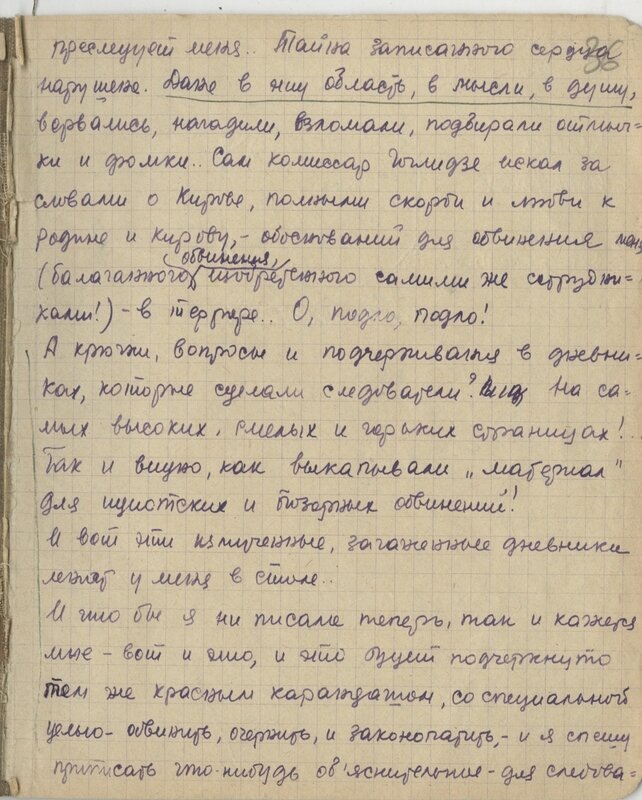 36
преследует меня.. Тайна записанного сердца
нарушена. Даже в эту область, в мысли, в душу,
ворвались, нагадили, взломали, подбирали отмыч-
ки и фомки.. Сам комиссар Гоглидзе искал за
словами о Кирове, полными скорби и любви к
родине и Кирову, - обоснований для обвинения меня
обвинения,
(балаганного, изобретенного самими же сотрудни-
ками!) - в терроре.. О, подло, подло!
А крючки, вопросы и подчеркивания в дневни-
ках, которые сделали следователи? На са-
мых высоких, смелых и горьких страницах!..
Так и видно, как выкапывали „материал"
для идиотских и позорных обвинений!
И вот эти измученные, загаженные дневники
лежат у меня в столе..
И что бы я ни писала теперь, так и кажется
мне - вот и это, и это будет подчеркнуто
тем же красным карандашом, со специальной
целью - обвинить, очернить, и законопатить, - и я спешу
приписать что-нибудь об'яснительное - для следова-